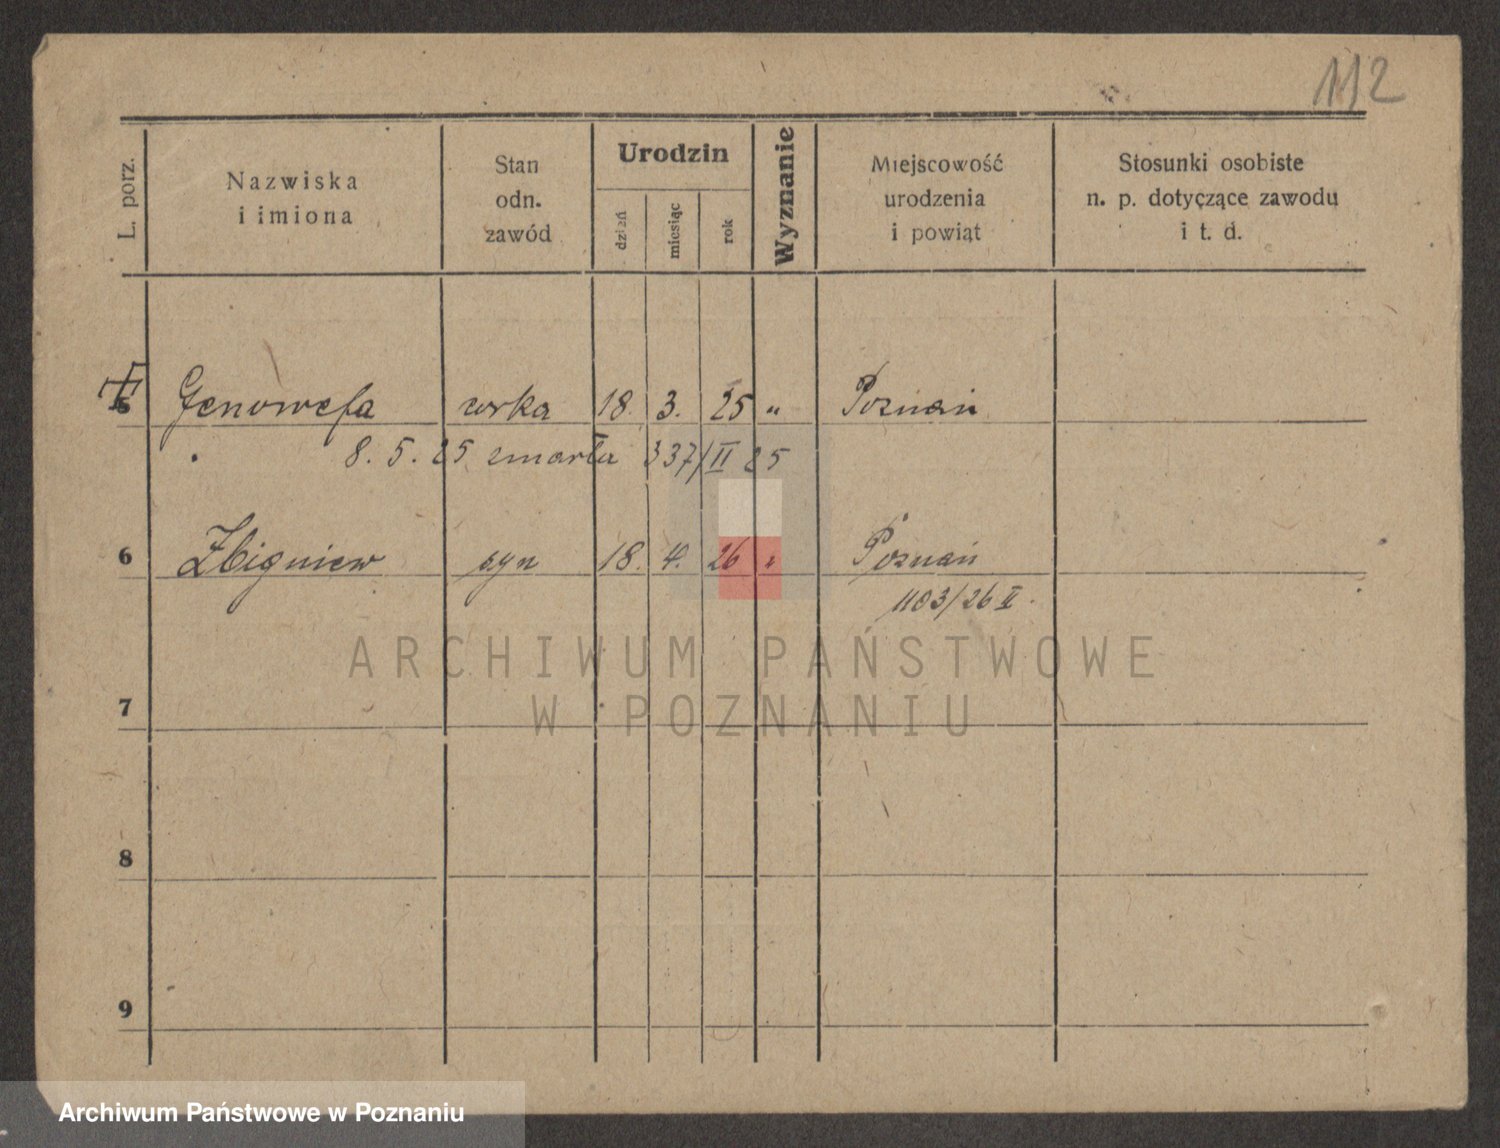 112
L. porz.
Nazwiska
i imiona
Stan
odn.
zawód
Urodzin
dzień
miesiąc
rok
Wyznanie
Miejscowość
urodzenia
i powiąt
Stosunki osobiste
n. p. dotyczące zawodu
i t. d.
5 Genowefa córka 18. 3. 25 " Poznań
8. 5. 25 zmarła 337/II 25
6 Zbigniew syn 18. 4. 26 " Poznań
1103/26 II.
ARCHIWUM PAŃSTWOWE
W POZNANIU
7
8
9
Archiwum Państwowe w Poznaniu